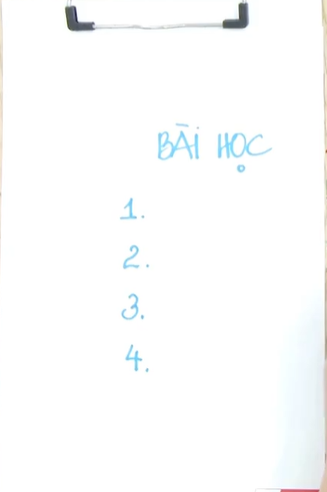 BÀI HỌC
1.
2.
3.
4.